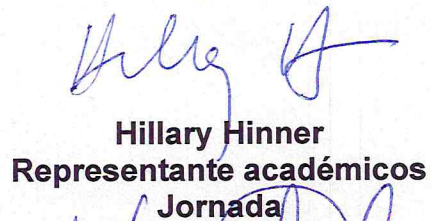 Hillary Hinner
Representante académicos
Jornada